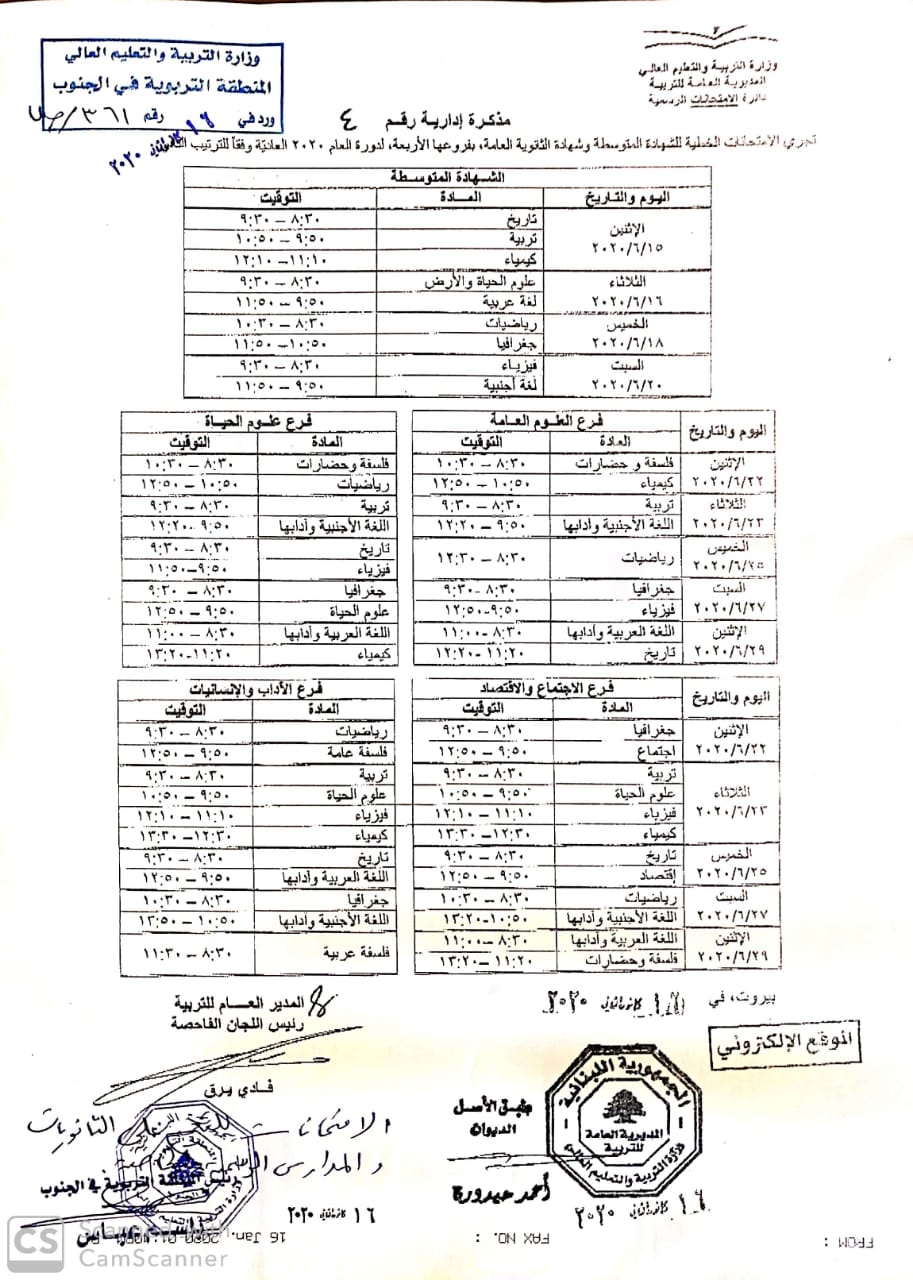 وزارة التربية والتعليم العالي
المديرية العامة للتربية
دائرة الامتحانات الرسمية
وزارة التربية والتعليم العالي
المنطقة التربوية في الجنوب
ورد في ١٦ كانون الثاني ٢٠٢٠ رقم ٣٦١/ص
مذكرة إدارية رقم ٤
تجري الامتحانات الخطية للشهادة المتوسطة وشهادة الثانوية العامة، بفروعها الأربعة، لدورة العام ٢٠٢٠ العادية وفقاً للترتيب التالي
الشهادة المتوسطة
اليوم والتاريخ المادة التوقيت
الإثنين ٢٠٢٠/٦/١٥ تاريخ ٨:٣٠ – ٩:٣٠
تربية ٩:٥٠ – ١٠:٥٠
كيمياء ١١:١٠ – ١٢:١٠
الثلاثاء ٢٠٢٠/٦/١٦ علوم الحياة والأرض ٨:٣٠ – ٩:٣٠
لغة عربية ٩:٥٠ – ١١:٥٠
الخميس ٢٠٢٠/٦/١٨ رياضيات ٨:٣٠ – ١٠:٣٠
جغرافيا ١٠:٥٠ – ١١:٥٠
السبت ٢٠٢٠/٦/٢٠ فيزياء ٨:٣٠ – ٩:٣٠
لغة أجنبية ٩:٥٠ – ١١:٥٠
اليوم والتاريخ فرع العلوم العامة فرع علوم الحياة
المادة التوقيت المادة التوقيت
الإثنين ٢٠٢٠/٦/٢٢ فلسفة و حضارات ٨:٣٠ – ١٠:٣٠ فلسفة وحضارات ٨:٣٠ – ١٠:٣٠
كيمياء ١٠:٥٠ – ١٢:٥٠ رياضيات ١٠:٥٠ – ١٢:٥٠
الثلاثاء ٢٠٢٠/٦/٢٣ تربية ٨:٣٠ – ٩:٣٠ تربية ٨:٣٠ – ٩:٣٠
اللغة الأجنبية وأدابها ٩:٥٠ – ١٢:٢٠ اللغة الأجنبية وأدابها ٩:٥٠ – ١٢:٢٠
الخميس ٢٠٢٠/٦/٢٥ رياضيات ٨:٣٠ – ١٢:٣٠ تاريخ ٨:٣٠ – ٩:٣٠
فيزياء ٩:٥٠ – ١١:٥٠
السبت ٢٠٢٠/٦/٢٧ جغرافيا ٨:٣٠ – ٩:٣٠ جغرافيا ٨:٣٠ – ٩:٣٠
فيزياء ٩:٥٠ – ١٢:٥٠ علوم الحياة ٩:٥٠ – ١٢:٥٠
الإثنين ٢٠٢٠/٦/٢٩ اللغة العربية وأدابها ٨:٣٠ – ١١:٠٠ اللغة العربية وأدابها ٨:٣٠ – ١١:٠٠
تاريخ ١١:٢٠ – ١٢:٢٠ كيمياء ١١:٢٠ – ١٣:٢٠
اليوم والتاريخ فرع الاجتماع والاقتصاد فرع الأداب والإنسانيات
المادة التوقيت المادة التوقيت
الإثنين ٢٠٢٠/٦/٢٢ جغرافيا ٨:٣٠ – ٩:٣٠ رياضيات ٨:٣٠ – ٩:٣٠
اجتماع ٩:٥٠ – ١٢:٥٠ فلسفة عامة ٩:٥٠ – ١٢:٥٠
الثلاثاء ٢٠٢٠/٦/٢٣ تربية ٨:٣٠ – ٩:٣٠ تربية ٨:٣٠ – ٩:٣٠
علوم الحياة ٩:٥٠ – ١٠:٥٠ علوم الحياة ٩:٥٠ – ١٠:٥٠
فيزياء ١١:١٠ – ١٢:١٠ فيزياء ١١:١٠ – ١٢:١٠
كيمياء ١٢:٣٠ – ١٣:٣٠ كيمياء ١٢:٣٠ – ١٣:٣٠
الخميس ٢٠٢٠/٦/٢٥ تاريخ ٨:٣٠ – ٩:٣٠ تاريخ ٨:٣٠ – ٩:٣٠
إقتصاد ٩:٥٠ – ١٢:٥٠ اللغة العربية وأدابها ٩:٥٠ – ١٢:٥٠
السبت ٢٠٢٠/٦/٢٧ رياضيات ٨:٣٠ – ١٠:٣٠ جغرافيا ٨:٣٠ – ١٠:٣٠
اللغة الأجنبية وأدابها ١٠:٥٠ – ١٣:٢٠ اللغة الأجنبية وأدابها ١٠:٥٠ – ١٣:٥٠
الإثنين ٢٠٢٠/٦/٢٩ اللغة العربية وأدابها ٨:٣٠ – ١١:٠٠ فلسفة عربية ٨:٣٠ – ١١:٣٠
فلسفة وحضارات ١١:٢٠ – ١٣:٢٠
بيروت، في كانون الثاني ٢٠٢٠
المدير العام للتربية
رئيس اللجان الفاحصة
فادي يرق
الموقع الإلكتروني
الجمهورية اللبنانية
المديرية العامة للتربية
وزارة التربية والتعليم العالي
طبق الأصل
الديوان
أحمد عيدورة
١٦ كانون الثاني ٢٠٢٠
الثانويات
والمدارس
رئيس المنطقة التربوية في الجنوب
١٦ كانون الثاني ٢٠٢٠
FROM : FAX NO. : 16 Jan. 2020
CS Scanned with
CamScanner